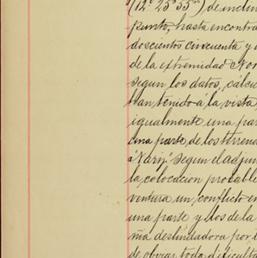 (12° 25' 55") de inclin
punto, hasta encontra
doscientos cincuenta y
de la extremidad Nor
segun los datos, cálcu
tan tenido á la vista
igualmente una par
una parte, de los terren
segun el adjun
la colocacion probable
ventura un conflicto en
una parte y los de la
ñia deslindadora por
de obviar toda dificulta